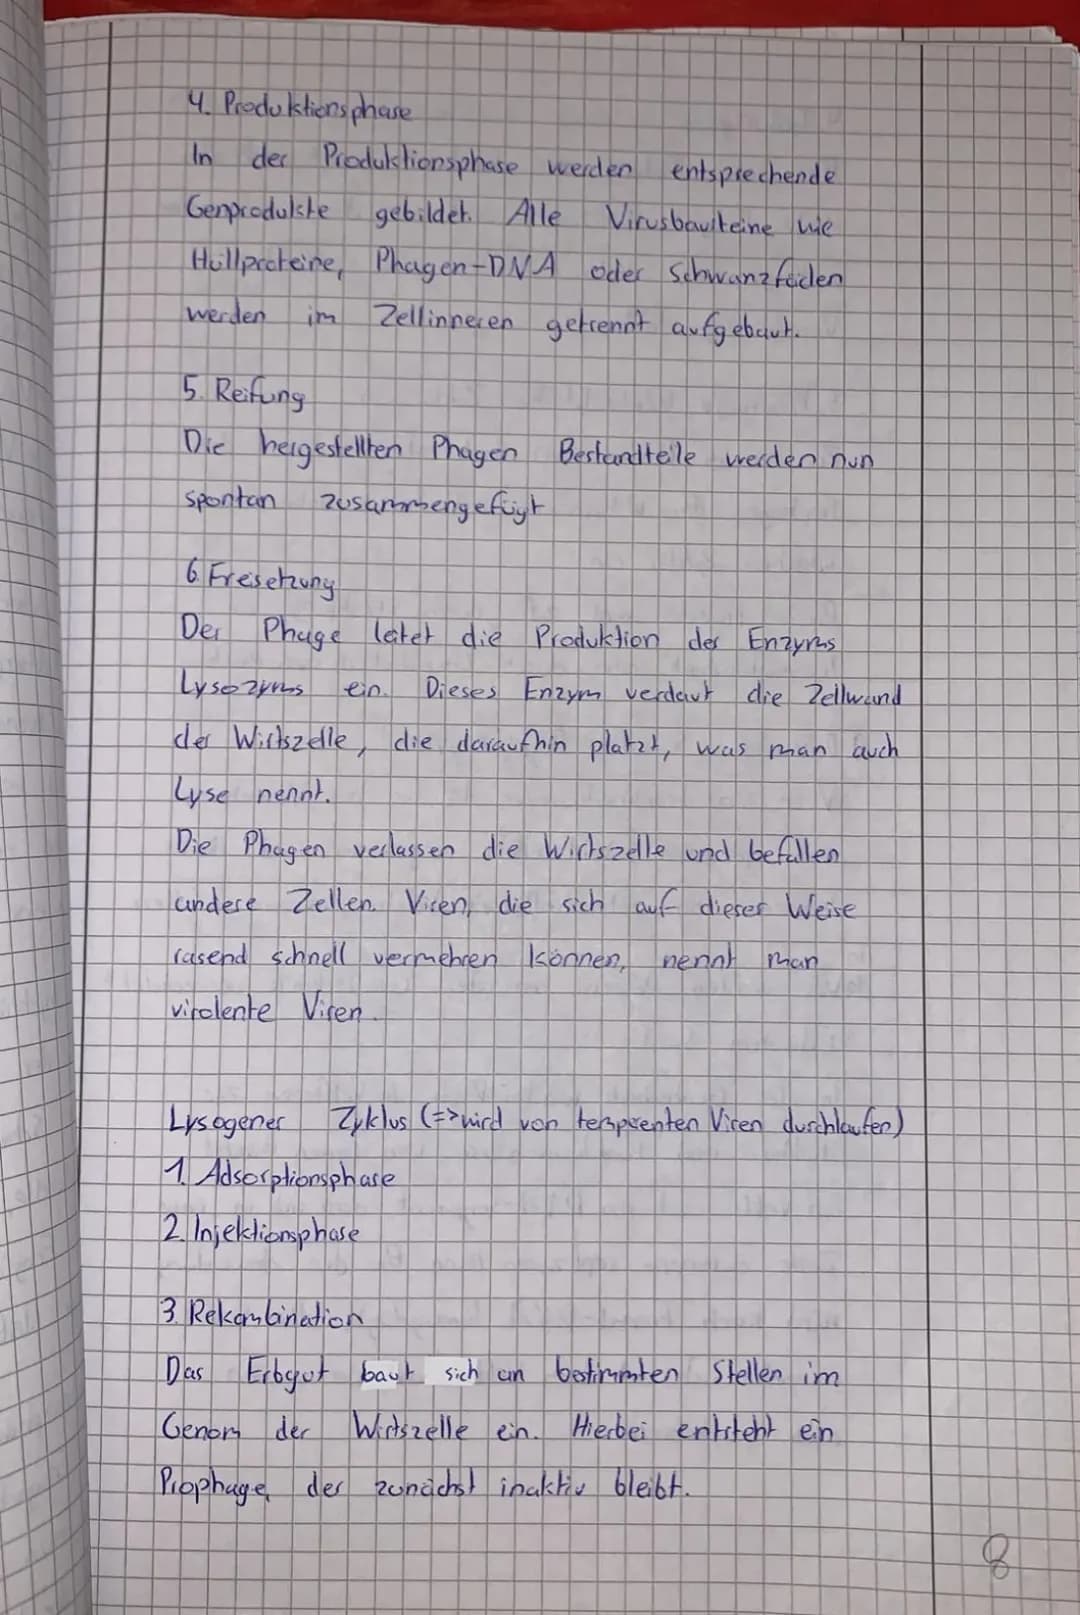 4. Produktionsphase
In der Produktionsphase werden entsprechende
Genprodukte gebildet. Alle Virusbausteine wie
Hüllproteine, Phagen-DNA oder Schwanzfäden
werden im Zellinneren getrennt aufgebaut.
5. Reifung
Die hergestellten Phagen Bestandteile werden nun
spontan zusammengefügt
6. Fresetzung
Der Phage leitet die Produktion des Enzyms
Lysozyms ein. Dieses Enzym verdaut die Zellwand
der Wirtszelle, die daraufhin platzt, was man auch
Lyse nennt.
Die Phagen verlassen die Wirtszelle und befallen
andere Zellen. Viren, die sich auf dieser Weise
rasend schnell vermehren können, nennt man
virolente Viren.
Lysogener Zyklus (=> wird von temperenten Viren durchlaufen)
1. Adsorptionsphase
2. Injektionsphase
3. Rekombination
Das Erbgut baut sich an bestimmten Stellen im
Genom der Wirtszelle ein. Hierbei entsteht ein
Prophage, der zunächst inaktiv bleibt.
8